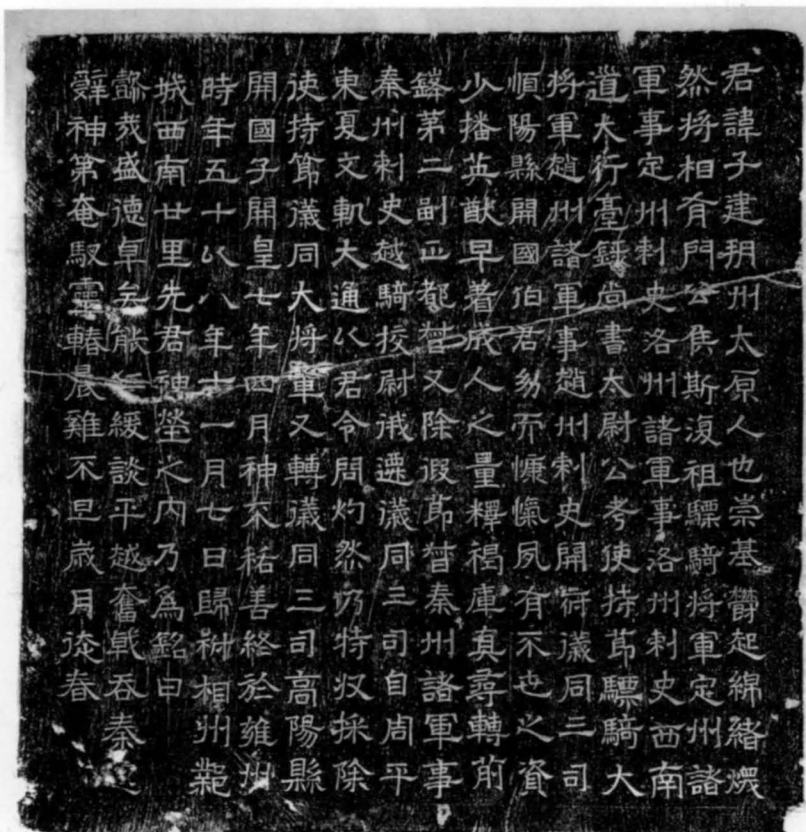 君諱子建朔州太原人也崇基欝起綿緒熾
然將相胥門公侯斯復祖驃騎將軍定州諸
軍事定州刺史洛州諸軍事洛州刺史西南
道大行臺錄尚書太尉公考使持節驃騎大
將軍趙州諸軍事趙州刺史開府儀同三司
順陽縣開國伯君幼而慷慨夙有不世之資
少播英猷早着成人之量釋褐庫真尋轉前
鋒第二副正都督又除假節督秦州諸軍事
秦州刺史越騎挍尉俄遷儀同三司自周平
東夏文軌大通以君令問灼然乃特收採除
使持節儀同大將軍又轉儀同三司高陽縣
開國子開皇七年四月神不祐善終於雍州
時年五十以八年十一月七日歸祔相州鄴
城西南廿里先君神塋之內乃為銘曰
懿哉盛德卓矣能仁緩談平越奮戟吞秦
辭神第奄馭靈輴晨雞不旦歲月徒春